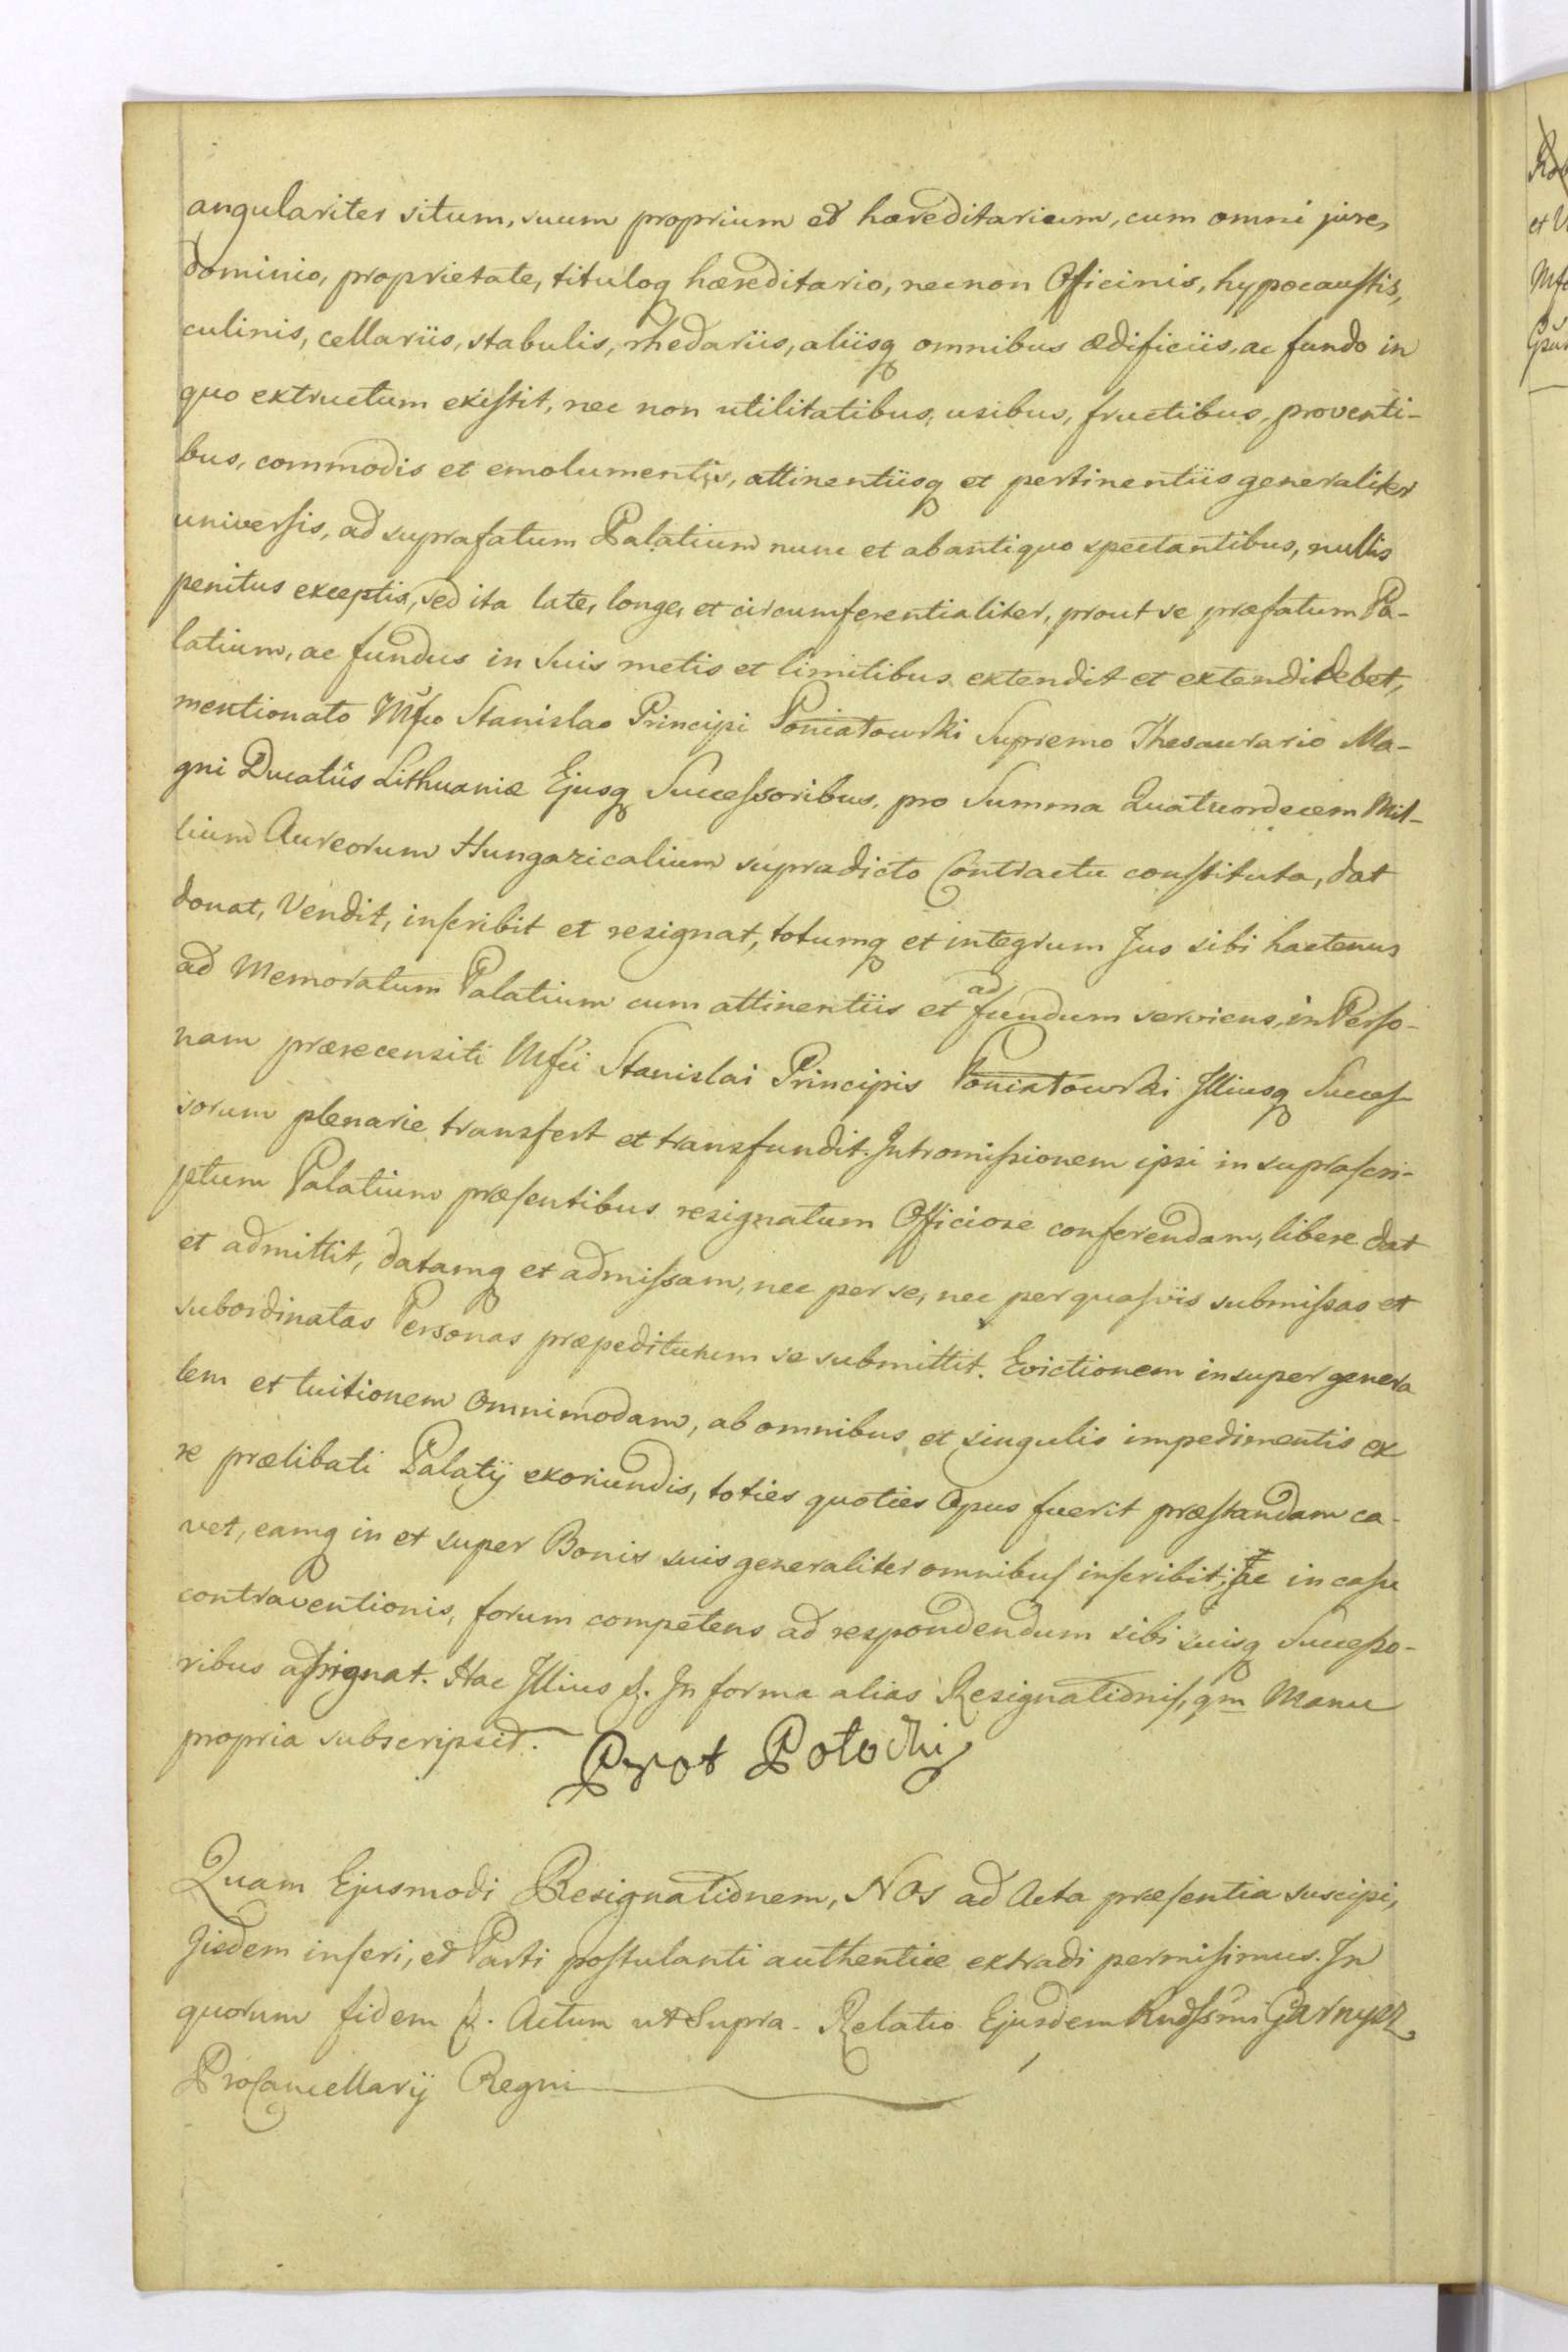 angulariter situm, suum proprium et hæreditarium, cum omni jure,
dominio, proprietate, tituloq hæreditario, necnon Officinis, hypocaustis,
culinis, cellariis, stabulis, rhedariis, aliisq omnibus ædificiis, ac fundo in
quo extructum existit, nec non utilitatibus, usibus, fructibus, proventi-
bus, commodis et emolumentis, attinentiisq et pertinentiis generaliter
universis, ad suprafatum Palatium nunc et ab antiquo spectantibus, nullis
penitus exceptis, sed ita late, longe, et circumferentialiter, prout se præfatum Pa-
latium, ac fundus in suis metis et limitibus extendit et extendi debet,
mentionato Mfco Stanislao Principi Poniatowski Supremo Thesaurario Ma-
gni Ducatûs Lithuaniæ Ejusq Successoribus, pro Summa Quatuordecem Mil-
lium Aureorum Hungaricalium supradicto Contractu constituta, dat
donat, Vendit, inscribit et resignat, totumq et integrum Jus sibi hactenus
ad Memoratum Palatium cum attinentiis et ad fundum serviens, in Perso-
nam præerecensiti Mfci Stanislai Principis Poniatowski Illiusq Succes
sorum plenarie transfert et transfundit. Intromissionem ipsi in suprascri-
ptum Palatium præsentibus resignatum Officiose conferendam, libere dat
et admittit, datamq et admissam, nec per se, nec per quasvis submissas et
subordinatas Personas præpediturum se submittit. Evictionem insuper genera
lem et tuitionem Omnimodam, ab omnibus et singulis impedimentis ex
re prælibati Palatij exoriundis, toties quoties Opus fuerit præstandam ca-
vet, eamq in et super Bonis suis generaliter omnibus inscribit; ac in casu
contraventionis, forum competens ad respondendum sibi suisq Successo-
ribus assignat. Hac Illius &. In forma alias Resignationis, qm Manu
propria subscripsit.
Prot Potocki
Quam Ejusmodi Resignationem, NOS ad Acta præsentia suscipi,
Jisdem inseri, et Parti postulanti authentice extradi permisimus. In
quorum fidem &. Actum ut Supra. Relatio Ejusdem Rndssmi Garnysz
ProCancellarij Regni